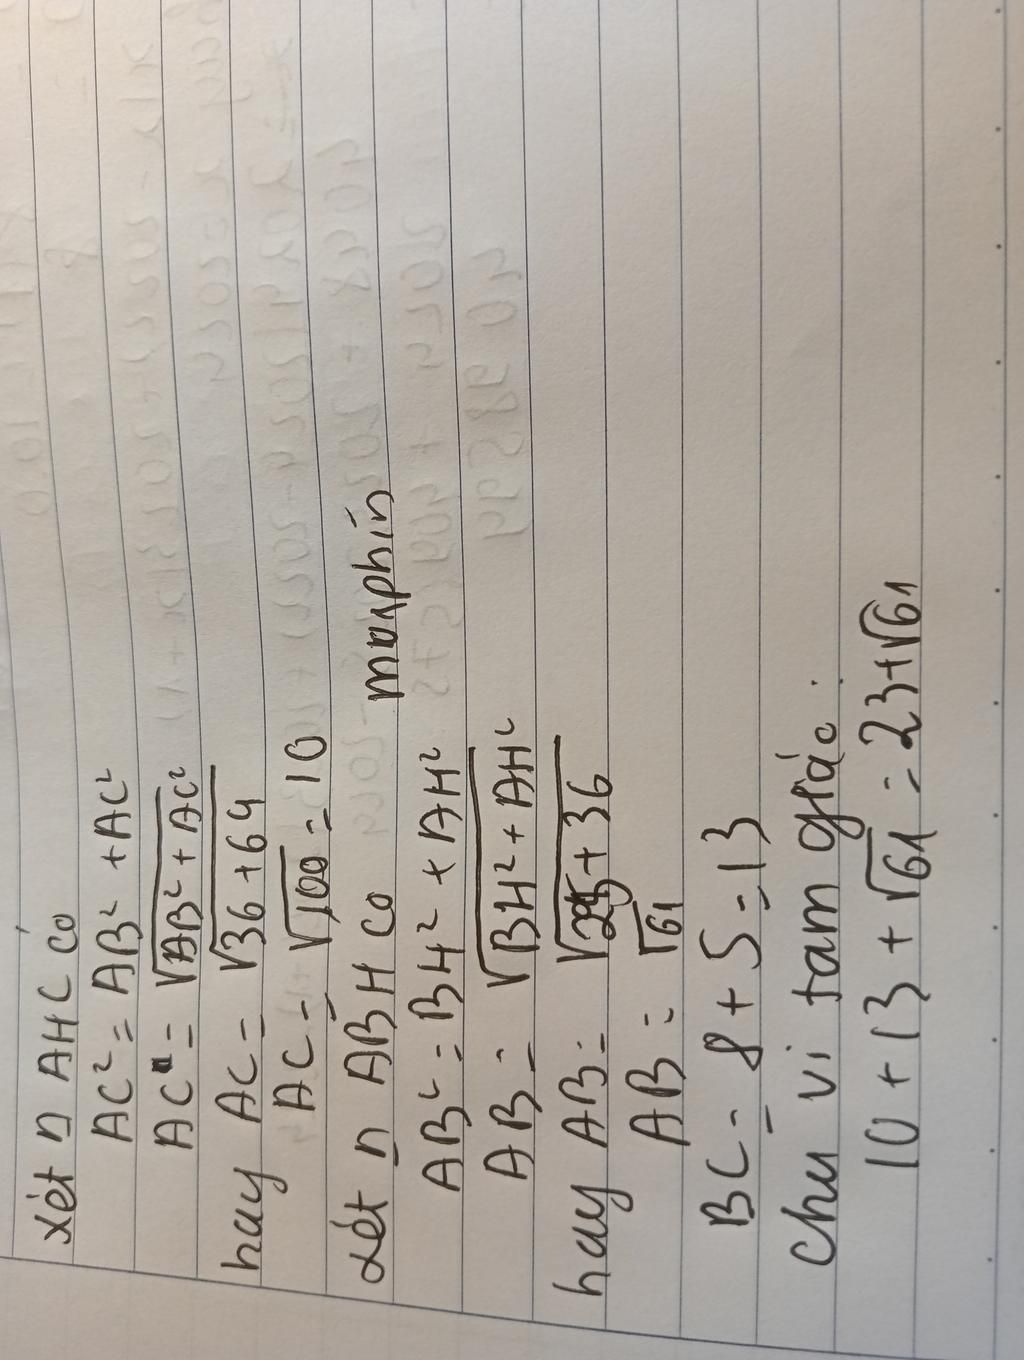 xét n AHC có
AC² = AB² + AC²
AC = √AB² + AC²
hay AC = √36 + 64
AC = √100 = 10
xét n ABH có
morphin
AB² = BH² + AH²
AB = √BH² + AH²
hay AB = √25 + 36
AB = √61
BC = 8 + 5 = 13
Chu vi tam giác:
10 + 13 + √61 = 23 + √61